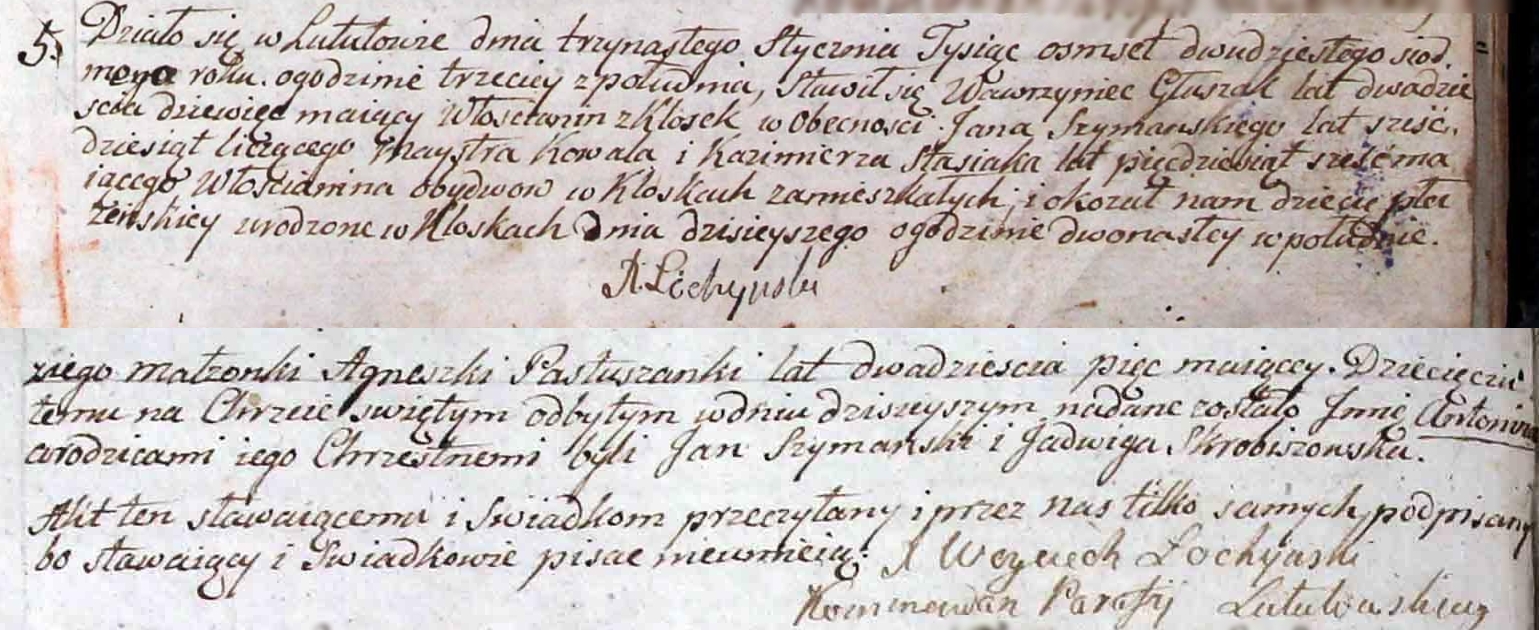 5. Działo się w Lututowie dnia trzynastego Stycznia Tysiąc osmset dwudziestego siod.
mego roku. ogodzinie trzeciey z południa, Stawił się Wawrzyniec Głuszak lat dwadzie
scia dziewięc maiący Włościanin z Klosek w Obecnosci Jana Szymanskiego lat sześć.
dziesiąt liczącego Maystra Kowala i Kazimierza Stasiaka lat pięcdziesiąt sześć ma
iącego Włościanina obydwow w Kloskach zamieszkałych, i okozał nam dziecię płci
żeńskiey urodzone w Kloskach Dnia dzisieyszego ogodzinie dwonastey w południe.
X. Łochyński
ziego małzonki Agneszki Pastuszanki lat dwadziescia pięc maiącey. Dziecięciu
temu na Chrzcie swiętym odbytym wdniu dzisieyszym nadane zostało Imię Antonina
arodzicami iego Chrzestnemi byli Jan Szymański i Jadwiga Skrobiszowska.
Akt ten stawaiącemu i Swiadkom przeczytany i przez nas tilko samych podpisany
bo stawaiący i Swiadkowie pisac nieumieią. X Woyciech Łochyński
Kommendarz Parafij Lututowskiey